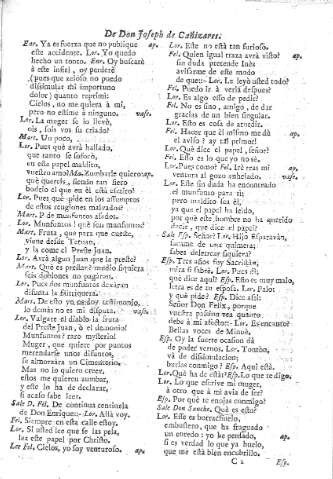 De Don Joseph de Cañizares.
Enr. Ya es fuerza que no publique ap.
este accidente. Lor. Yo quedo
hecho un tonto. Enr. Oy buscarè
à este infiel, oy perderè
(pues que zeloso no puedo
dissimular ni importuno
dolor) quanto reprimi:
Cielos, no me quiera à mi,
pero no estime à ninguno. vase.
Lor. La muger se lo llevó,
ois, sois vos su criado?
Marc. Un poco,
Lor. Pues què avrà hallado,
que tanto se
en este papel maldito,
vuestro amo? Mar. Zumbarle quiero: ap.
què quereis, siendo tan fiero
bodelo el que en él està escrito?
Lor. Pues què pide en los
de estos renglones malvados?
Marc. P de munfuntos asados.
Lor. Munfuntos! què son munfuntos?
Marc. Fruta, que para que cueste,
viene desde Tetuan,
y la come el Preste Juan.
Lor. Avrà algun Juan que la preste?
Marc. Què es prestar? medio siquiera
seis doblones no pagaran.
Lor. Pues dos munfuntos dexaran
difunta la faltriquera.
Marc. De esto yo
lo demàs no es mi disputa. vase.
Lor. Valgate el diablo la fruta
del Preste Juan, ò el demonio!
Munfuntos! raro mysterio!
Muger, que quiere por puntos
merendarse unos difuntos,
se almorzàra un Cimenterio.
Mas no lo quiero creer,
estos me quieren zumbar,
y esse lo ha de declarar,
si acaso sabe leer.
Sale D. Fel. De continua centinela
de Don Enrique Lor. Allà voy.
Fel. Siempre en esta calle estoy.
Lor. Si usted lee que se las pela,
lea este papel por Christo.
Fel. Cielos, yo soy venturoso. ap.
Lor. Este no està tan furioso.
Fel. Quien igual traza avrà visto? ap.
sin duda pretende Inès
avisarme de este modo
de que Lor. La leyò usted todo?
Fel. Puedo ir à verla despues?
Lor. Es algo esso de pedir?
Fel. No es sino, amigo, de dar
gracias de un bien singular.
Lor. Esto es cosa de aturdir.
Fel. Hacer que èl mismo me dà ap.
el aviso? ay tal primor!
Lor. Què dice el papel, señor?
Fel. Esso es lo que yo no sè.
Lor. Pues como? Fel. Irè tras mi ap.
ventura al gozo anhelado. vase.
Lor. Este sin duda ha encontrado
el munfunto para sì;
pero maldito sea èl,
ya que el papel ha leido,
por què este hombre no ha querido
decir, que dice el papel?
Sale Esp. Señor? Lor. Hijo Esparavàn,
sacame de una quimera;
sabes deletrear siquiera?
Esp. Tres años fuy Sacristàn,
mira si sabrè. Lor. Pues
què dice aqui? Esp. Esto es muy malo,
letra es de tu esposa. Lor. Palo!
y què pide? Esp. Dice assi:
Señor Don Felix, porque
vuestra passion vea quanto
debe à mi afecto- Lor. Es encanto?
Bellas voces de Minuè.
Esp. Oy la fuerte ocasion dà
de poder vernos. Lor. Tontòn,
và de dissimulacion;
burlas conmigo? Esp. Aqui està.
Lor. Què ha de estàr? Esp. Lo que te digo.
Lor. Lo que escrive mi muger,
à otro que à mi avia de ser?
Esp. Por què te enojas conmigo?
Sale Don Sancho. Què es esto?
Lor. Este es borrachuelo,
embustero, que ha fraguado
un enredo: yo he perdido, ap.
si es verdad lo que ya huelo,
que me està bien encubrillo.
C 2 Esp.